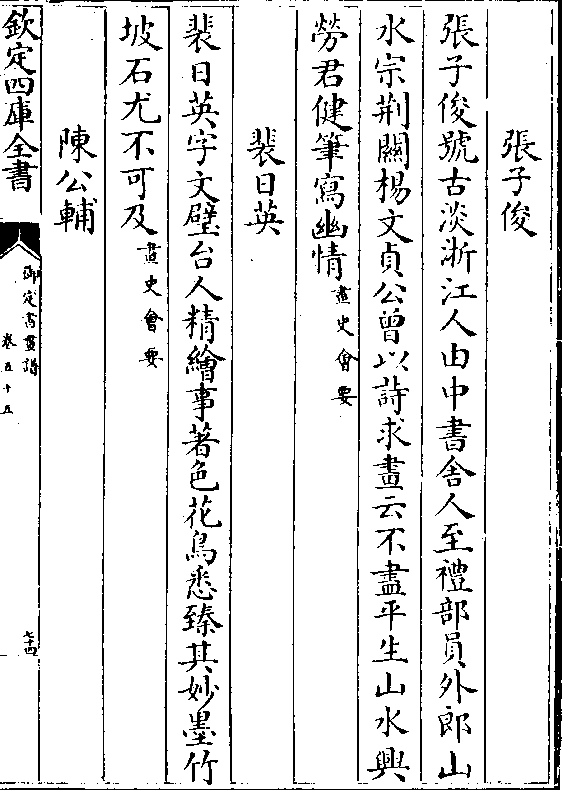 張子俊
張子俊號古淡浙江人由中書舍人至禮部員外郎山
水宗荆關楊文貞公曾以詩求畫云不盡平生山水興
勞君健筆寫幽情畫史會要
裴日英
裴日英字文璧台人精繪事著色花鳥悉臻其妙墨竹
坡石尤不可及畫史會要
陳公輔
欽定四庫全書
御定書畫譜
卷五十五
七十四